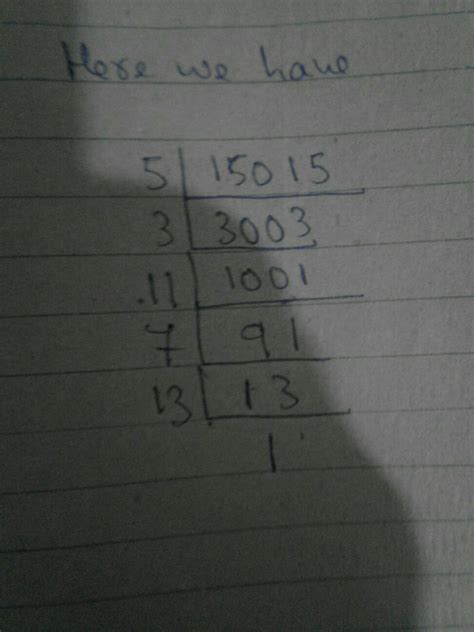 Here we have
5 | 15015
3 | 3003
11 | 1001
7 | 91
13 | 13
1